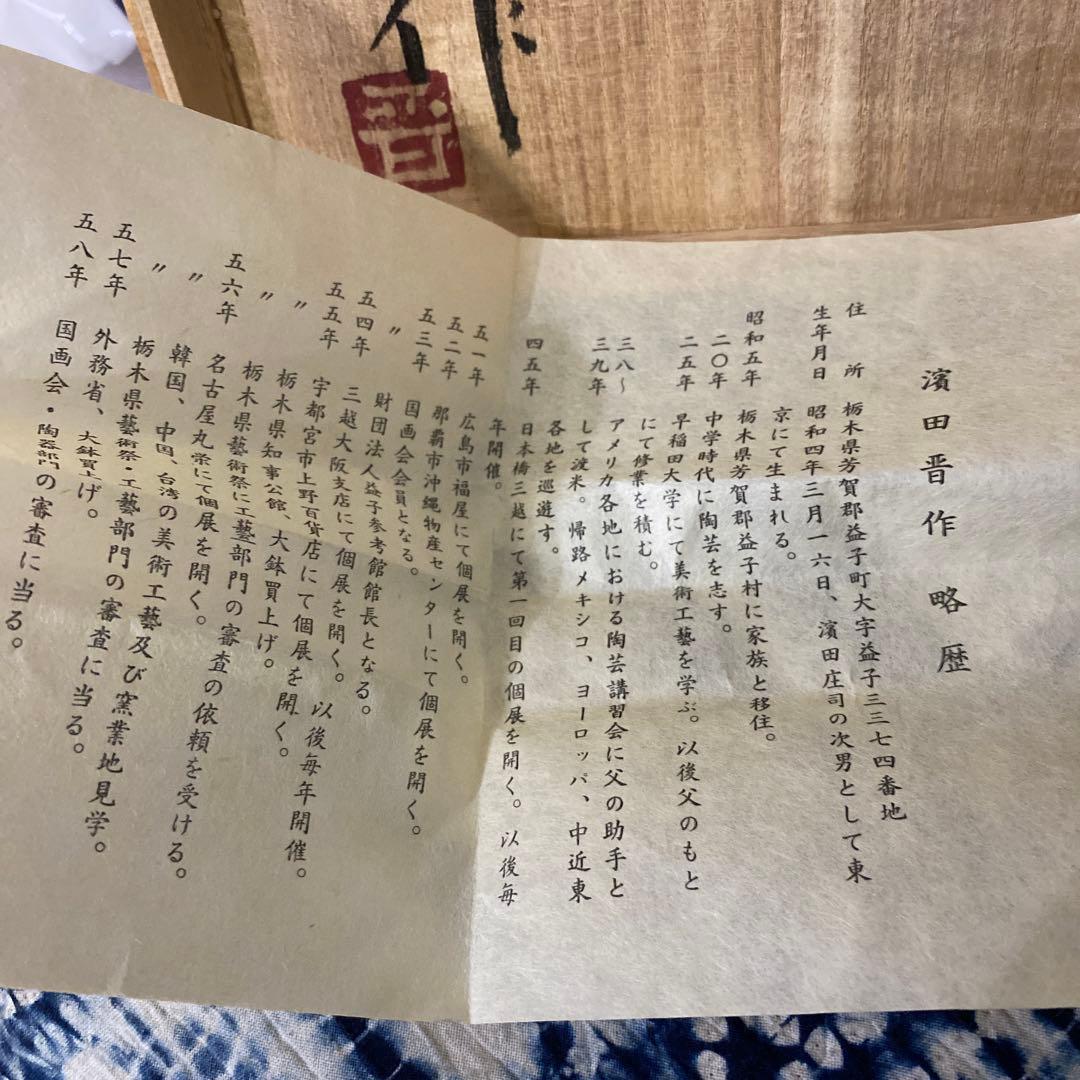 作
晋
濱田晋作 略歴
住所 栃木県芳賀郡益子町大字益子三三七四番地
生年月日 昭和四年三月一六日、濱田庄司の次男として東
京にて生まれる。
昭和五年 栃木県芳賀郡益子村に家族と移住。
二〇年 中学時代に陶芸を志す。
二五年 早稲田大学にて美術工藝を学ぶ。以後父のもと
にて修業を積む。
三八〜 アメリカ各地における陶芸講習会に父の助手と
三九年 して渡米。帰路メキシコ、ヨーロッパ、中近東
各地を巡遊す。
四五年 日本橋三越にて第一回目の個展を開く。以後毎
年開催。
五一年 広島市福屋にて個展を開く。
五二年 那覇市沖縄物産センターにて個展を開く。
五三年 国画会会員となる。
〃 財団法人益子参考館館長となる。
五四年 三越大阪支店にて個展を開く。以後毎年開催。
五五年 宇都宮市上野百貨店にて個展を開く。
〃 栃木県知事公館、大鉢買上げ。
〃 栃木県藝術祭に工藝部門の審査の依頼を受ける。
五六年 名古屋丸栄にて個展を開く。
〃 韓国、中国、台湾の美術工藝及び窯業地見学。
〃 栃木県藝術祭・工藝部門の審査に当る。
五七年 外務省、大鉢買上げ。
五八年 国画会・陶器部門の審査に当る。